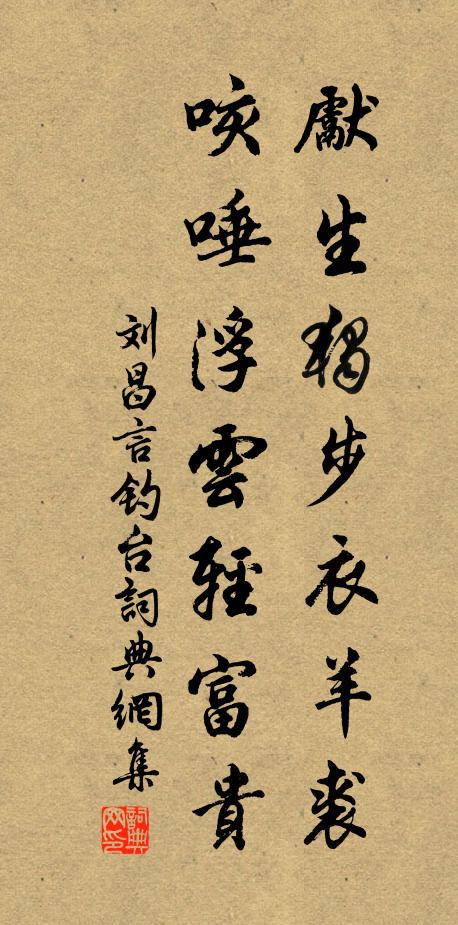 獻生獨步衣羊裘
咳唾浮雲輕富貴
刘昌言钓台詞典網集
詞典网印